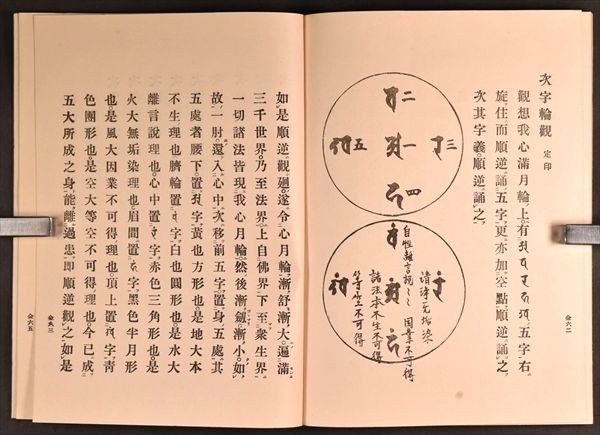 次字輪觀 定印
觀想我心滿月輪上有五字右
旋住而順逆誦五字更亦加空點順逆誦之
次其字義順逆誦之
二
三 一 五
四
清淨无垢染
因業不可得
自性離言説
諸法本不生不可得
等空不可得
如是順逆觀廻遂令心月輪漸舒漸大遍滿
三千世界乃至法界上自佛界下至衆生界
一切諸法皆現我心月輪然後漸劔漸小如
故一肘還入心中次移前五字置身五處其
五處者腰下置字黃也方形也是地大本
不生理也臍輪置字白也圓形也是水大
離言説理也心中置字赤色三角形也是
火大無垢染理也眉間置字黑色半月形
也是風大因業不可得理也頂上置字靑
色團形也是空大等空不可得理也今已成
五大所成之身能離過患即順逆觀之如是